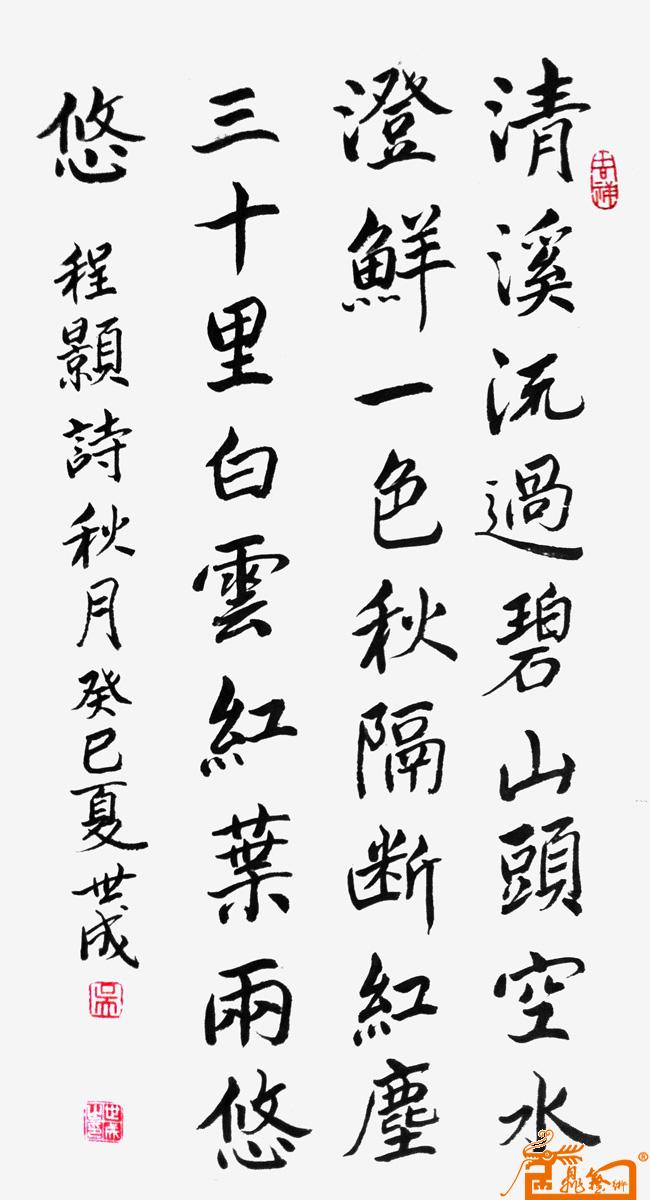 清溪流過碧山頭空水
澄鮮一色秋隔断紅塵
三十里白雲紅葉兩悠
悠
程顥詩秋月癸巳夏世成